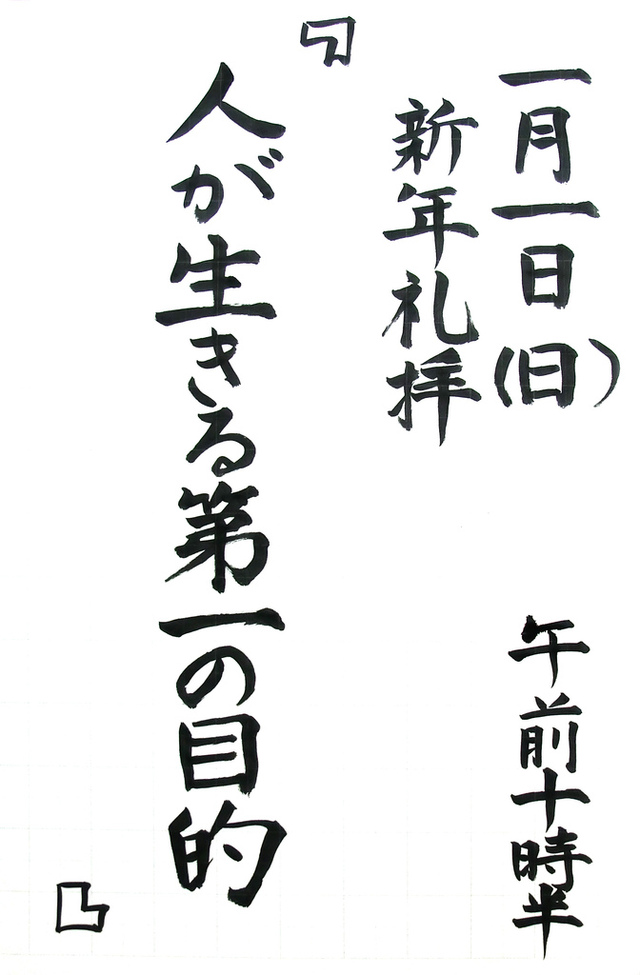 一月一日(日) 午前十時半
新年礼拝
『人が生きる第一の目的』